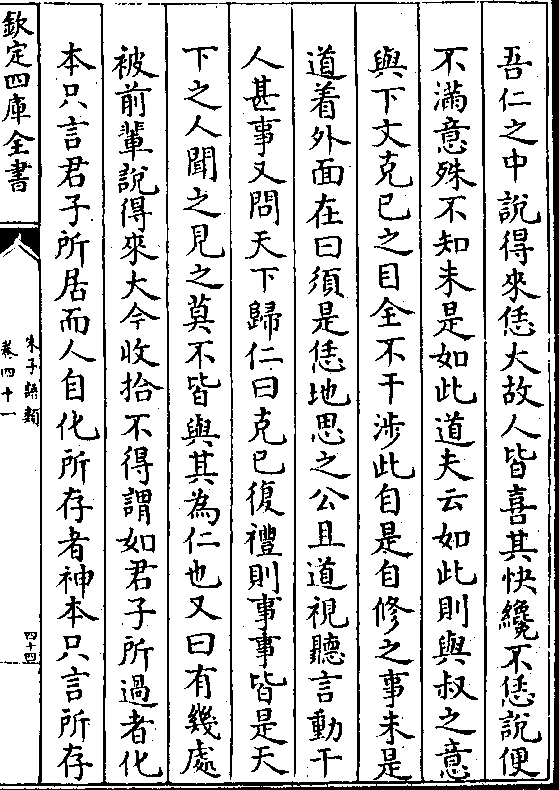 吾仁之中說得來恁大故人皆喜其快纔不恁說便
不滿意殊不知未是如此道夫云如此則與叔之意
與下文克已之目全不干涉此自是自修之事未是
道着外面在曰須是恁地思之公且道視聽言動干
人甚事又問天下歸仁曰克已復禮則事事皆是天
下之人聞之見之莫不皆與其為仁也又曰有幾處
被前輩說得來大今收拾不得謂如君子所過者化
本只言君子所居而人自化所存者神本只言所存
欽定四庫全書
朱子語類
卷四十一
四十四